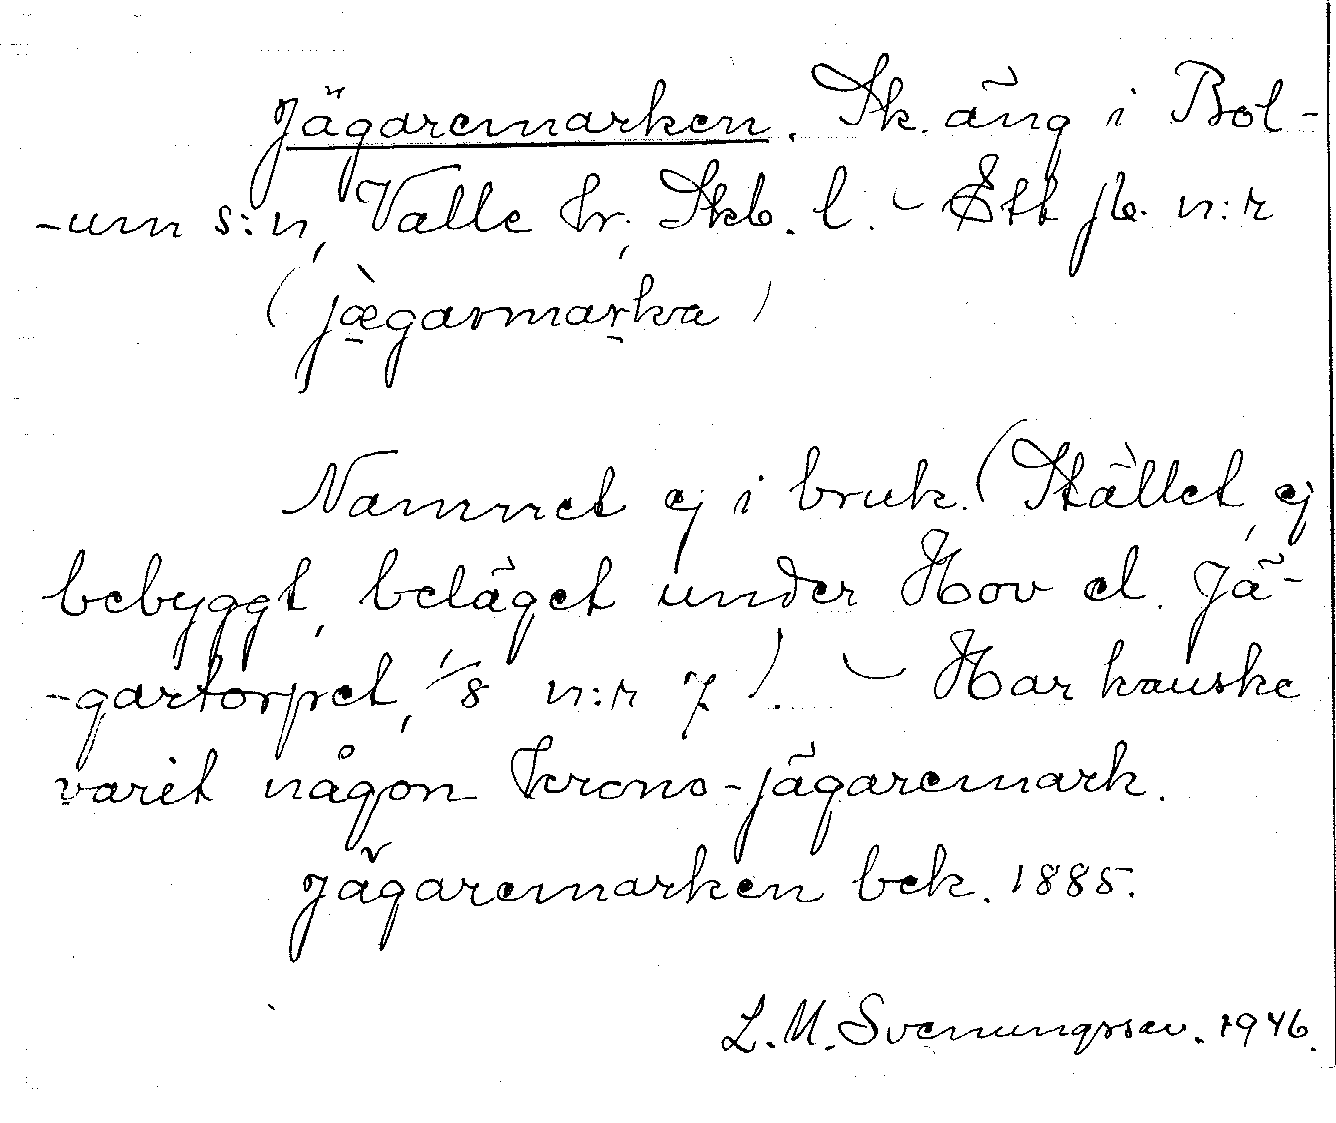 Jägaremarken. Sk. äng i Bol-
-um s:n, Valle hr, Skb. l. – Ett jb. n:r
(jægarmarka)
Namnet ej i bruk. (Stället, ej
bebyggt, beläget under Hov el. Jä-
-gartorpet, 1/8 n:r 7). – Har kanske
varit någon krono-jägaremark.
Jägaremarken bek. 1885.
L. M. Svenungsson. 1946.